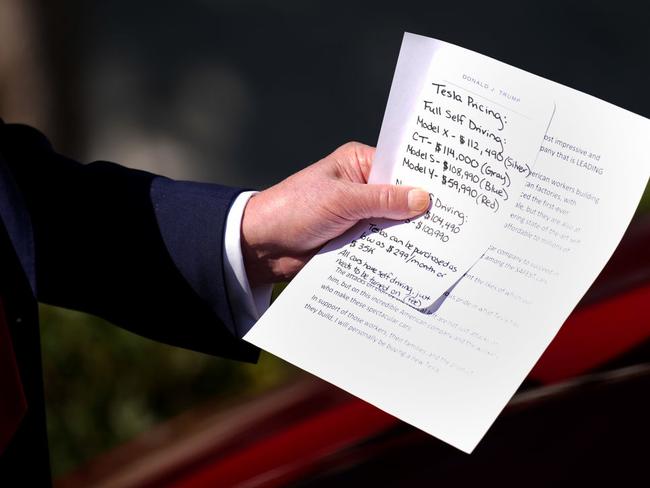 DONALD J. TRUMP
Tesla Pricing:
Full Self Driving:
Model X - $112,490 (Silver)
CT - $114,000 (Gray)
Model S - $108,990 (Blue)
Model Y - $59,990 (Red)
Driving:
$104,490
- $100,990
Teslas can be purchased as
low as $299/month or
$35K
All cars have self driving, just
needs to be turned on
most impressive and
pany that is LEADING
erican workers building
an factories, with
ed the first-ever
le, but they are also at
ering state of the art self
affordable to millions of
car company to succeed in
among the SAFEST cars
ent the likes of which our
pride in what Tesla has
The attacks
are not just attacks on
him, but on this incredible American company and the workers
who make these spectacular cars.
In support of those workers, their families, and the product
they build, I will personally be buying a new Tesla.